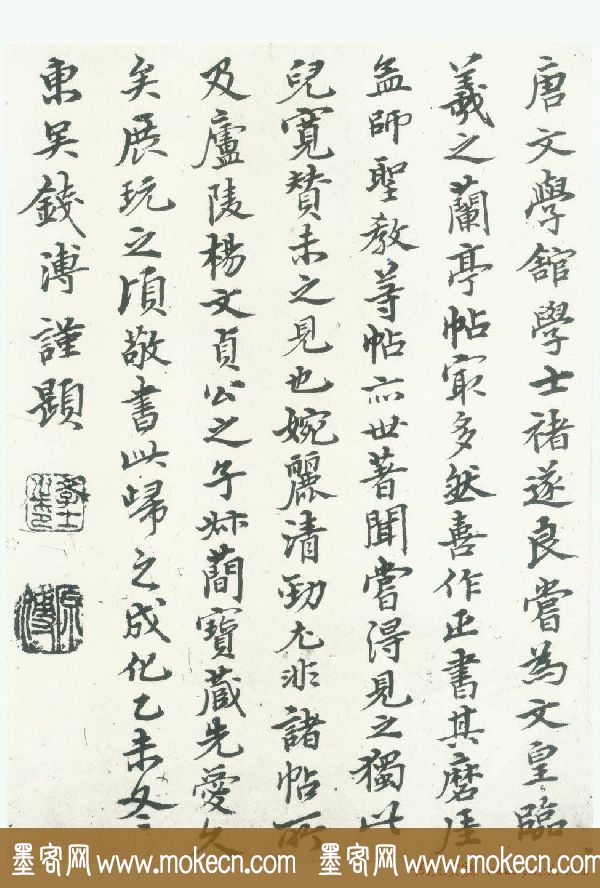 唐文學舘學士褚遂良嘗為文皇臨
羲之蘭亭帖冣多然善作正書其磨崖
孟師聖教等帖亦世著聞嘗得見之獨此
兒寬贊未之見也婉麗清勁尤非諸帖所
及廬陵楊文貞公之子叔蕳寶蔵先愛久
矣展玩之頃敬書此歸之成化乙未冬
東吴錢溥謹題
學士
原溥
墨客网 www.mokecn.com 墨客网 www.mokecn.com